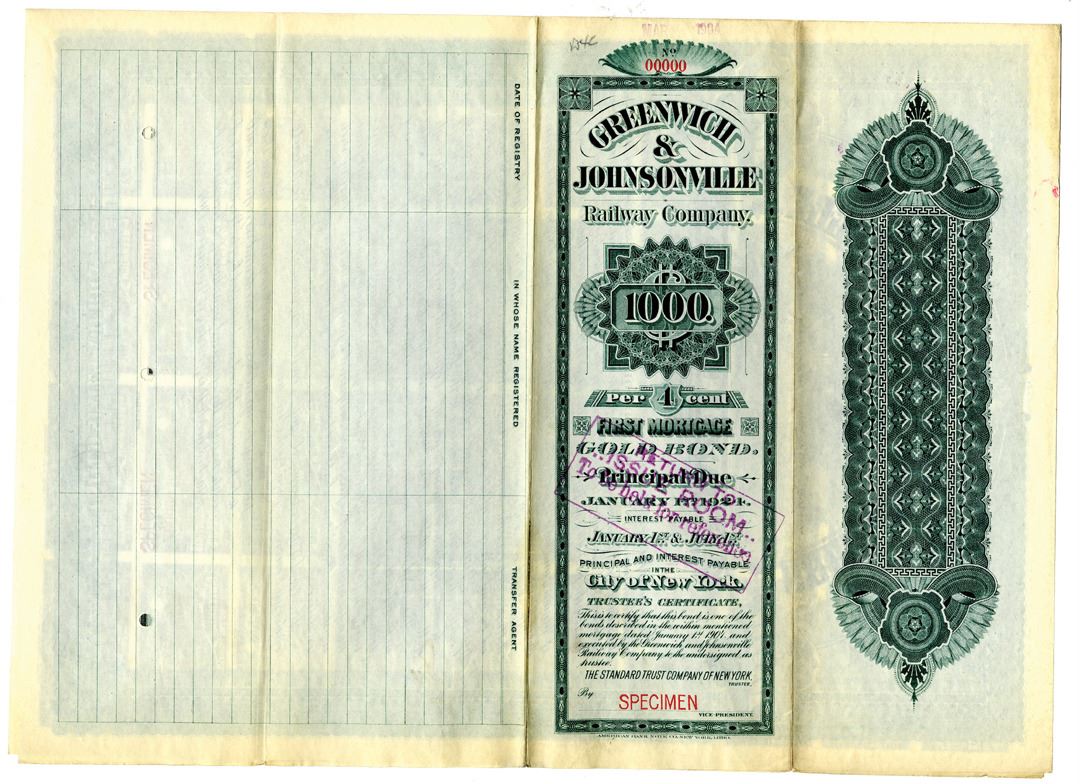 MAR 1904
No
00000
GREENWICH
&
JOHNSONVILLE
Railway Company.
$
1000.
Per 4 cent
FIRST MORTGAGE
GOLD BOND.
Principal Due
JANUARY 1ST 1924.
INTEREST PAYABLE
JANUARY 1ST & JULY 1ST
PRINCIPAL AND INTEREST PAYABLE
IN THE
City of New York.
TRUSTEE'S CERTIFICATE,
This is to certify that this bond is one of the
bonds described in the within mentioned
mortgage dated January 1st 1904. and
executed by the Greenwich and Johnsonville
Railway Company to the undersigned as
trustee.
THE STANDARD TRUST COMPANY OF NEW YORK,
TRUSTEE,
By SPECIMEN
VICE-PRESIDENT.
AMERICAN BANK NOTE CO. NEW YORK.
RETURN TO
..ISSUE ROOM..
To be held for reference
DATE OF REGISTRY
IN WHOSE NAME REGISTERED
TRANSFER AGENT
SPECIMEN
SPECIMEN